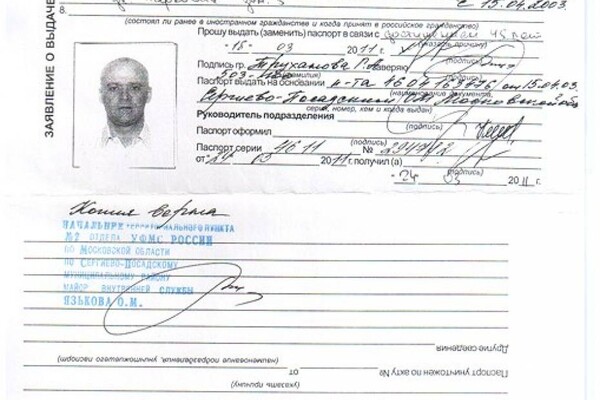 с 15.04.2003.
(состоял ли ранее в иностранном гражданстве и когда принят в российское гражданство)
8.
Прошу выдать (заменить) паспорт в связи с достижением 45 лет
(указать причину)
18 03 2011 г.
Подпись гр. Труханова Г.А. заверяю
(фамилия)
(подпись)
Паспорт выдать на основании
от 15.04.03.
(наименование документа,
Сергиево-Посадским ОМ Московской обл
серия, номер, кем и когда выдан)
Руководитель подразделения
(подпись)
Паспорт оформил
(подпись)
Паспорт серии 46 11 № 294782
от 24 03 2011 г. получил (а)
(подпись)
24 03 2011 г.
ЗАЯВЛЕНИЕ О ВЫДАЧЕ
Копия верна
НАЧАЛЬНИК ТЕРРИТОРИАЛЬНОГО ПУНКТА
№2 ОТДЕЛА УФМС РОССИИ
ПО МОСКОВСКОЙ ОБЛАСТИ
ПО СЕРГИЕВО-ПОСАДСКОМУ
МУНИЦИПАЛЬНОМУ РАЙОНУ
МАЙОР ВНУТРЕННЕЙ СЛУЖБЫ
ЯЗЬКОВА О.М.
Другие сведения
(наименование подразделения, уничтожившего паспорт)
Паспорт уничтожен по акту №
от
(указать причину)